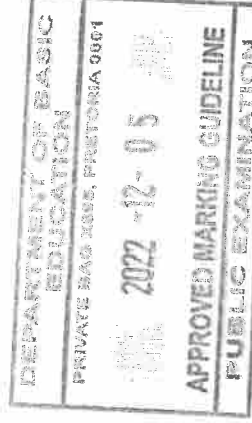 DEPARTMENT OF BASIC
EDUCATION
PRIVATE BAG X895, PRETORIA 0001
2022 -12- 05
APPROVED MARKING GUIDELINE
PUBLIC EXAMINATION